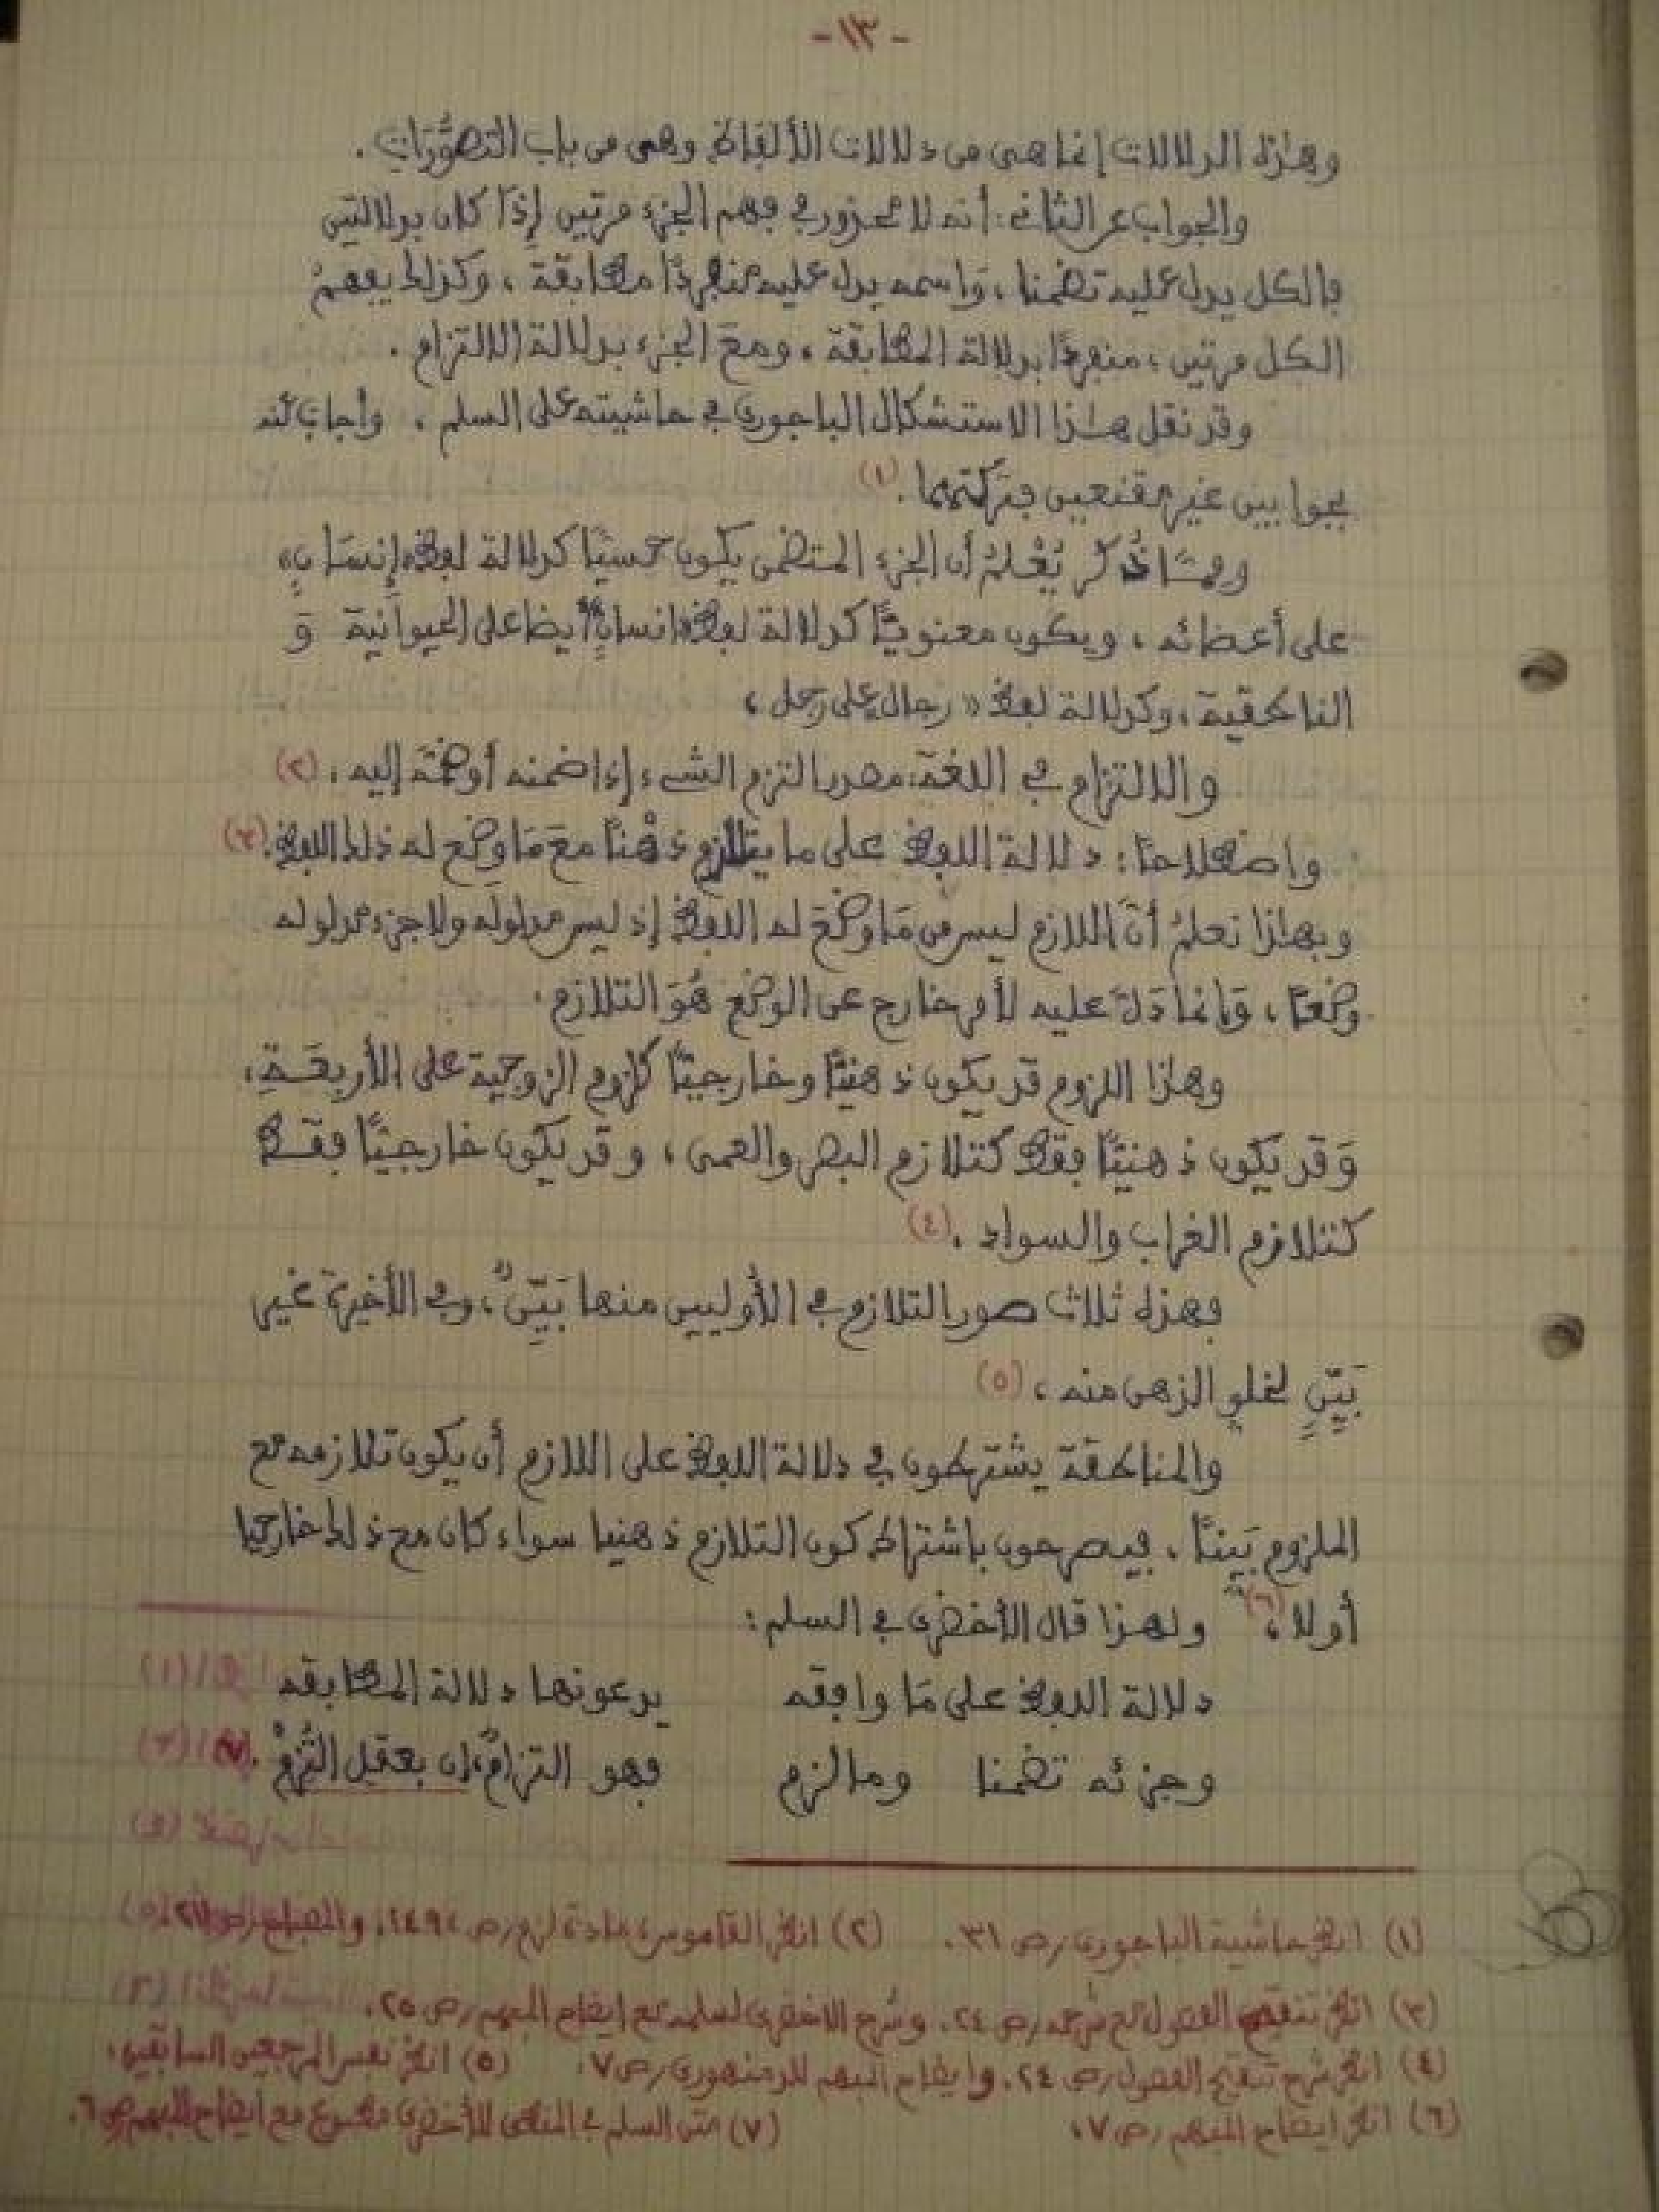 -١٣-
وهذه الدلالات إنما هى من دلالات الألفاظ وهى من باب التصوُّرَات .
والجواب عن الثانى : أنه لا محذور فى فهم الجزء مرتين إذَا كان بدلالتين
فالكل يدل عليه تضمنا ، وَاسمه يدل عليه منفردًا مطابقة ، وَكذلك يفهمُ
الكل مرتين ؛ منفردًا بدلالة المطابقة ، ومعَ الجزء بدلالة الالتزام .
وقد نقل هذا الاستشكال الباجورى فى حاشيته على السلم ، وأجاب عنه
بجوابين غير مقنعين فتركتهما . (١)
وممَّا ذُكر يُعْلمُ أن الجزء المتضمن يكون حسيًّا كدلالة لفظ «إنسَانٍ»
على أعضائه ، ويكون معنويًّا كدلالة لفظ «انسانٍ» أيضا على الحيوانية وَ
الناطقية ، وكدلالة لفظ « رجال على رجل ،
والالتزام فى اللغة : مصدر التزم الشىء ؛ إذا ضمنه أو ضمَّه إليه . (٢)
واصطلاحًا : دلالة اللفظ على ما يتلازم ذهْنًا معَ مَا وضع له ذلك اللفظ . (٣)
وبهاذا نعلمُ أنَّ اللازم ليس من مَا وضعَ له اللفظ إذ ليس مدلوله ولا جزء مدلوله
وضعًا ، وَإنما دَلَّ عليه لأمر خارج عن الوضع هُوَ التلازم .
وهاذا اللزوم قد يكون ذهنيًّا وخارجيًّا كلزوم الزوجية على الأربعَـةِ ،
وَقد يكون ذهنيًّا فقط كتلازم البصر والعمى ، وقد يكون خارجيًّا فقـط
كتلازم الغراب والسواد . (٤)
فهذه ثلاث صور التلازم فى الأوليين منها بَيِّنٌ ، وفى الأخيرة غير
بَيِّنٍ لخلو الذهن منه ، (٥)
والمناطقة يشترطون فى دلالة اللفظ على اللازم أن يكون تلازمه مع
الملزوم بَيِّنًا ، فيصرحون باشتراط كون التلازم ذهنيا سواء كان مع ذلك خارجيا
أو لا ، (٦) ولهذا قال الأخضرى فى السلم :
دلالة اللفظ على مَا وافقه يدعونها دلالة المطابقه
وجزئه تضمنا وما لزم فهو التزامٌ ان بعقل التُزمْ . (٧)
(١) انظر حاشية الباجورى / ص ٣١ . (٢) انظر القاموس ، مادة لزم / ص ١٤٩٤ ، والمصباح / ص
(٣) انظر تنقيح الفصول مع شرحه / ص ٢٤ . وشرح الاخضرى لسلمه مع ايضاح المبهم / ص ٢٥ .
(٤) انظر شرح تنقيح الفصول / ص ٢٤ . وايضاح المبهم للدمنهورى / ص ٧ . (٥) انظر نفس المرجعين السابقين .
(٦) انظر ايضاح المبهم / ص ٧ . (٧) متن السلم فى المنطق للأخضرى مطبوع مع ايضاح المبهم ص ٦ .